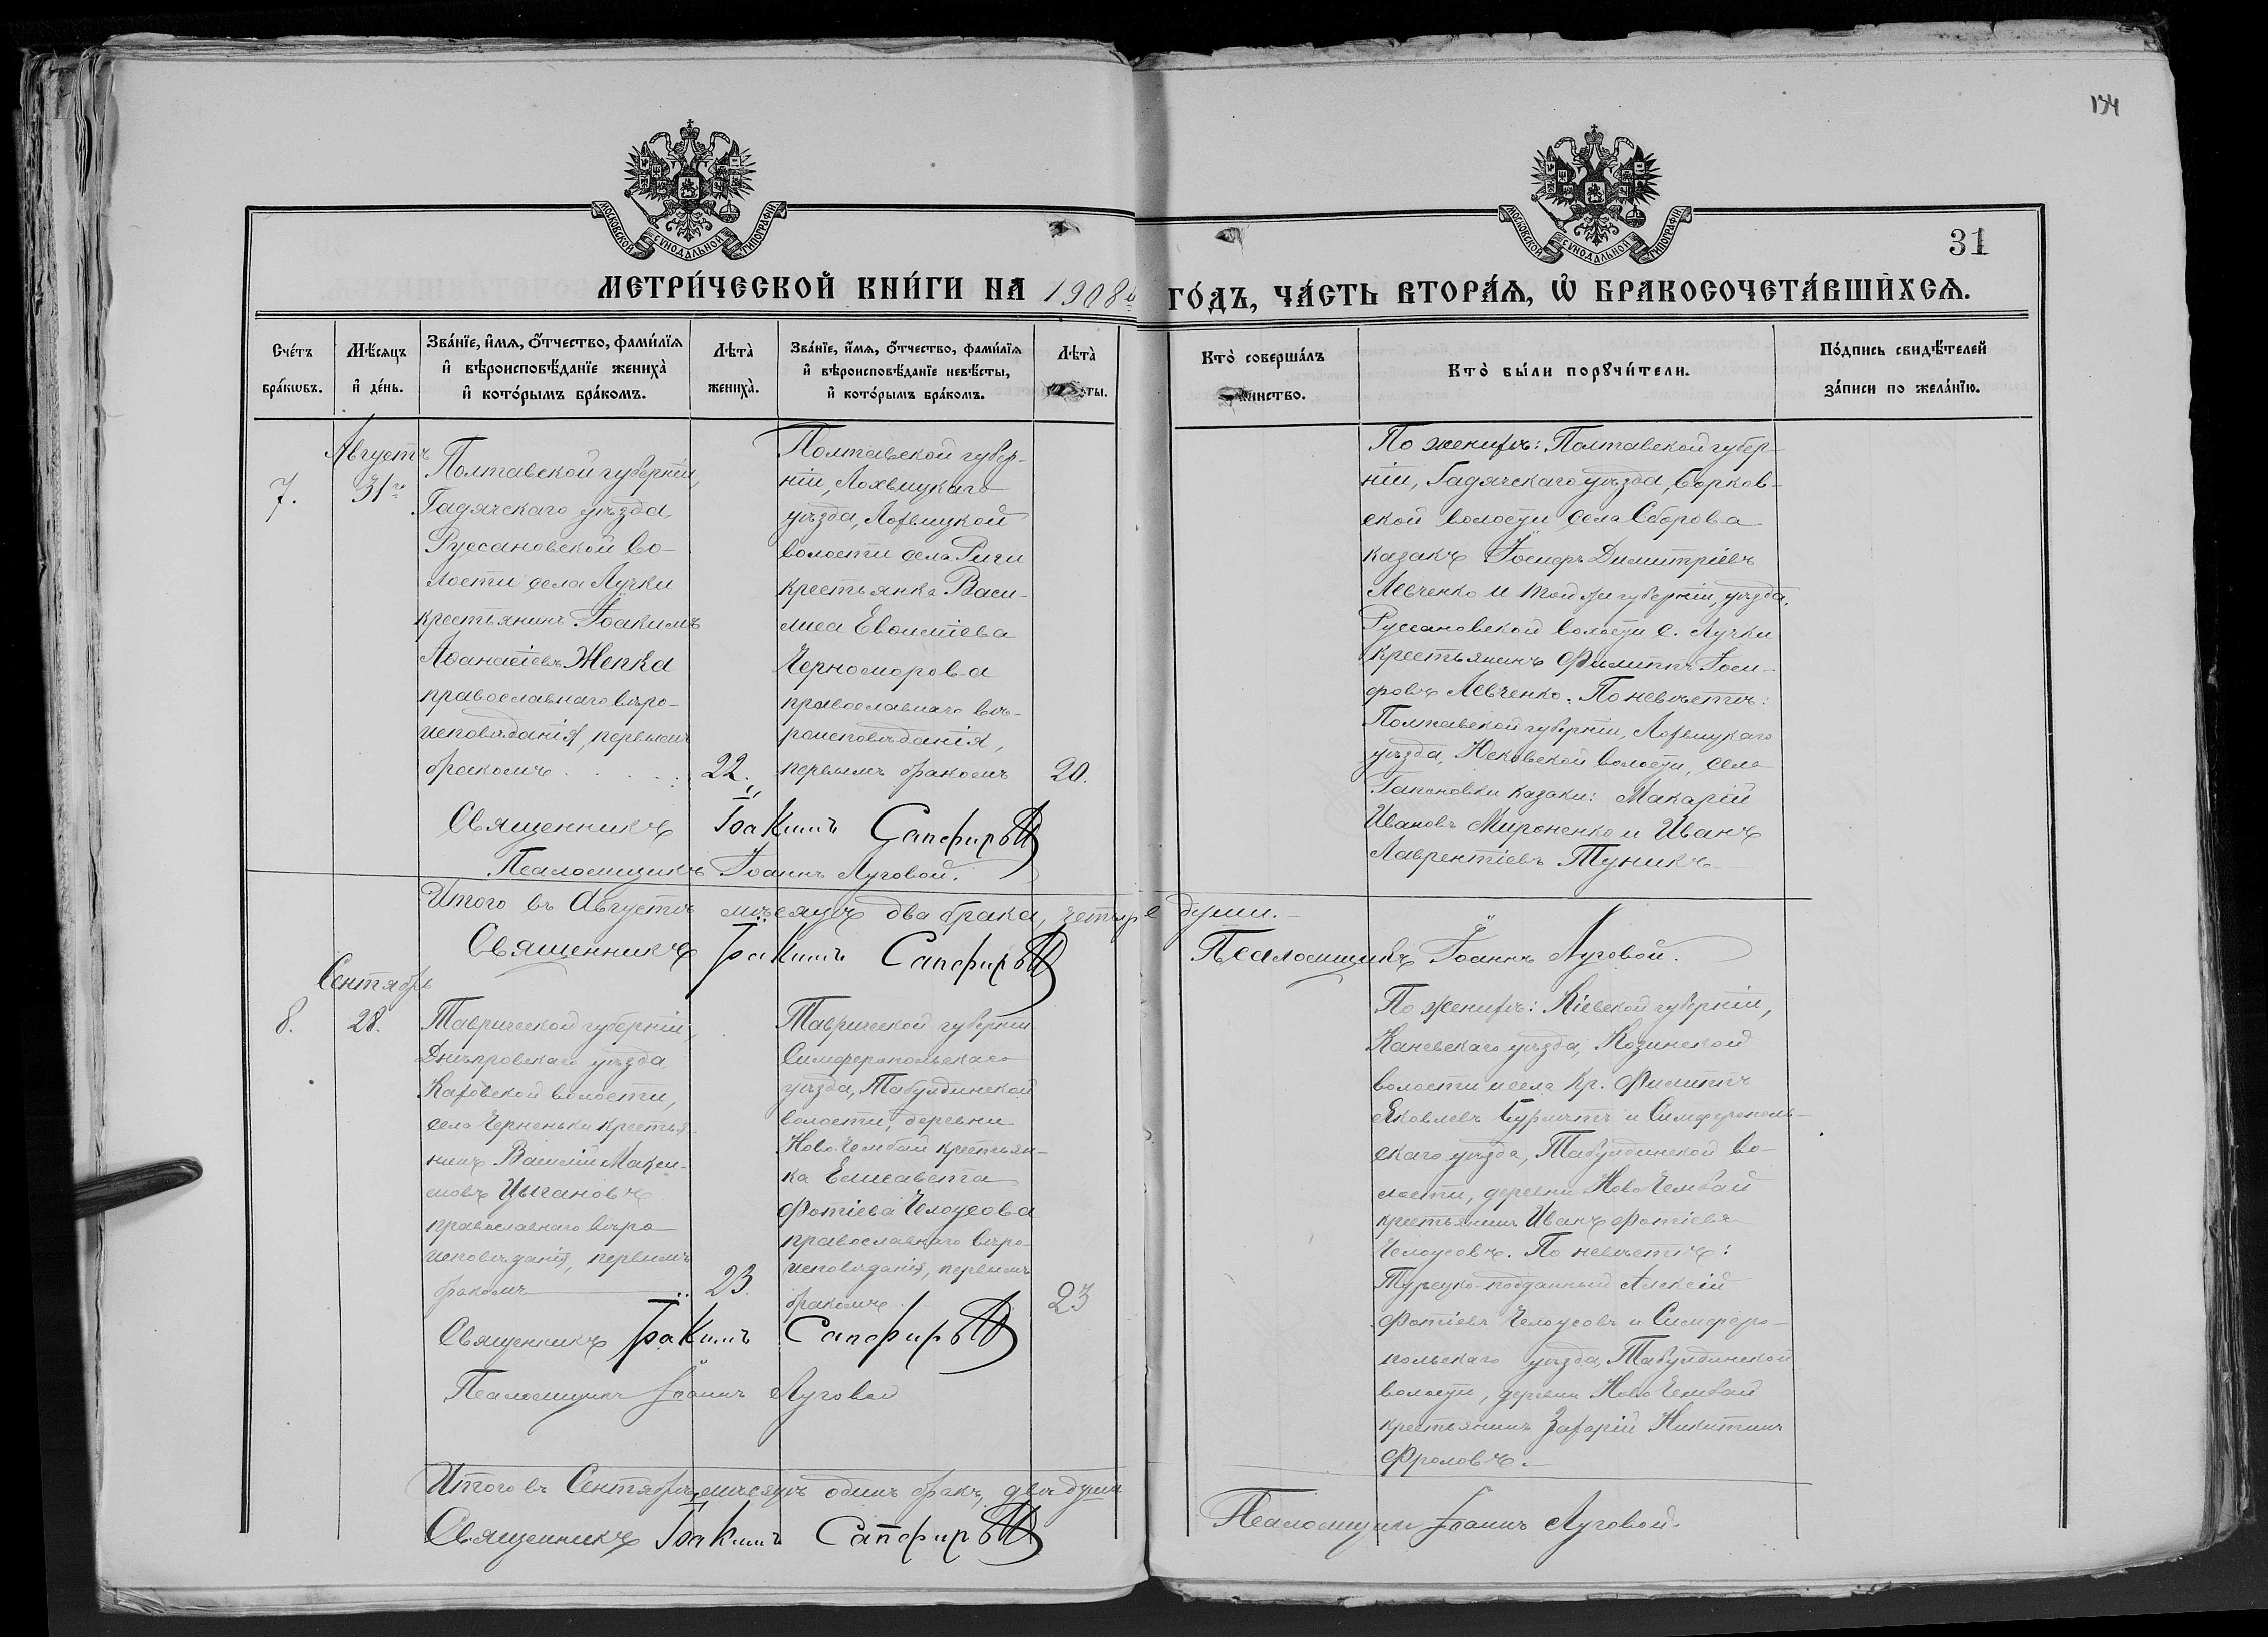 134
МОСКОВСКОЙ СѴНОДАЛЬНОЙ ТИПОГРАФІИ.
МОСКОВСКОЙ СѴНОДАЛЬНОЙ ТИПОГРАФІИ.
31
МЕТРИ́ЧЕСКОЙ КНИ́ГИ НА 1908й ГО́ДЪ, ЧА́СТЬ ВТОРА́Ѧ, Ѡ҆ БРАКОСОЧЕТА́ВШИХСѦ.
Счéтъ
брáкѡвъ.
Мѣ́сяцъ
и҆ дéнь.
Звáнїе, и҆́мѧ, ѻ҆́тчество, фами́лїѧ
и҆ вѣроисповѣ́данїе женихà
и҆ кото́рымъ брáкомъ.
Лѣтà
женихà.
Звáнїе, и҆́мѧ, ѻ҆́тчество, фами́лїѧ
и҆ вѣроисповѣ́данїе невѣ́сты,
и҆ кото́рымъ брáкомъ.
Лѣтà
Ктò совершáлъ
Ктò бы́ли порꙋчи́тели.
Пóдпись свидѣ́телей
зáписи по желáнїю.
Августъ
7.
31го
Полтавской губерніи,
Гадячскаго уѣзда,
Руссановской во-
лости села Лучки
крестьянинъ Іоакимъ
Аѳанасіевъ Жепка
православнаго вѣро-
исповѣданія, первымъ
бракомъ
22.
Полтавской губер-
ніи, Лохвицкаго
уѣзда, Лохвицкой
волости села Риги
крестьянка Васи-
лиса Евфиміева
Черноморова
православнаго вѣ-
роисповѣданія,
первымъ бракомъ
20.
Священникъ Іоакимъ Сапфировъ
Псаломщикъ Іоаннъ Луговой.
По женихѣ: Полтавской губер-
ніи, Гадячскаго уѣзда, Борков-
ской волости села Сборова
казакъ Іосифъ Димитріевъ
Левченко и той же губерніи, уѣзда,
Руссановской волости с. Лучки
крестьянинъ Филиппъ Іоси-
фовъ Левченко. По невѣстѣ:
Полтавской губерніи, Лохвицкаго
уѣзда, Юсковской волости, села
Гапоновки казаки: Макарій
Ивановъ Мироненко и Иванъ
Лаврентіевъ Туникъ
Итого въ Августѣ мѣсяцѣ два брака, четыре души.
Священникъ Іоакимъ Сапфировъ Псаломщикъ Іоаннъ Луговой.
Сентябрь
8.
28.
Таврической губерніи,
Днѣпровскаго уѣзда
Каховской волости,
села Черненьки крестья-
нинъ Василій Макси-
мовъ Цыгановъ
православнаго вѣро
исповѣданія, первымъ
бракомъ
23.
Таврической губерніи
Симферопольскаго
уѣзда, Табулдинской
волости, деревни
Ново-Чембай крестьян-
ка Елисавета
Фотіева Челоусова
православнаго вѣро-
исповѣданія, первымъ
бракомъ
23
Священникъ Іоакимъ Сапфировъ
Псаломщикъ Іоаннъ Луговой
По женихѣ: Кіевской губерніи,
Каневскаго уѣзда, Козинской
волости и села кр. Филиппъ
Яковлевъ и Симферополь-
скаго уѣзда, Табулдинской во-
лости, деревни Ново Чембай
крестьянинъ Иванъ Фотіевъ
Челоусовъ. По невѣстѣ:
Турецко-подданный Алексій
Фотіевъ Челоусовъ и Симферо-
польскаго уѣзда, Табулдинской
волости, деревни Ново Чембай
крестьянинъ Захарій Никитинъ
Фроловъ.
Итого въ Сентябрѣ мѣсяцѣ одинъ бракъ, двѣ души
Священникъ Іоакимъ Сапфировъ Псаломщикъ Іоаннъ Луговой.